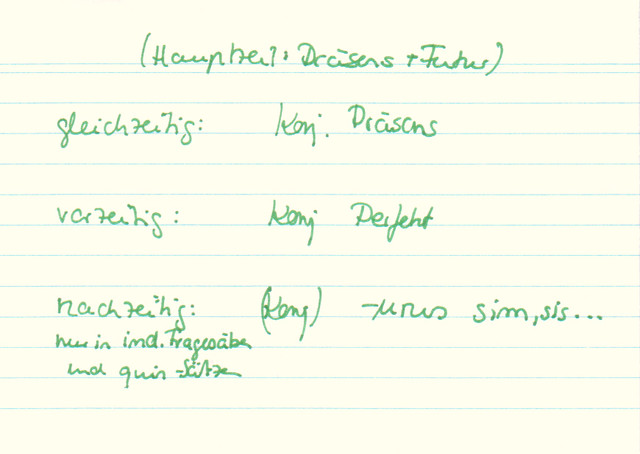 (Hauptzeit: Präsens + Futur)
gleichzeitig: Konj. Präsens
vorzeitig: Konj Perfekt
nachzeitig: (Konj) -urus sim, sis...
nur in ind. Fragesätze
und quin-Sätze